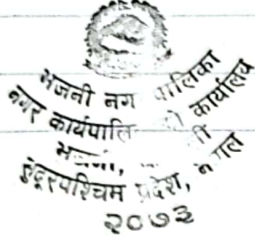 भजनी नग पालिका
नगर कार्यपालि को कार्यालय
सुदूरपश्चिम प्रदेश, नेपाल
२०७३